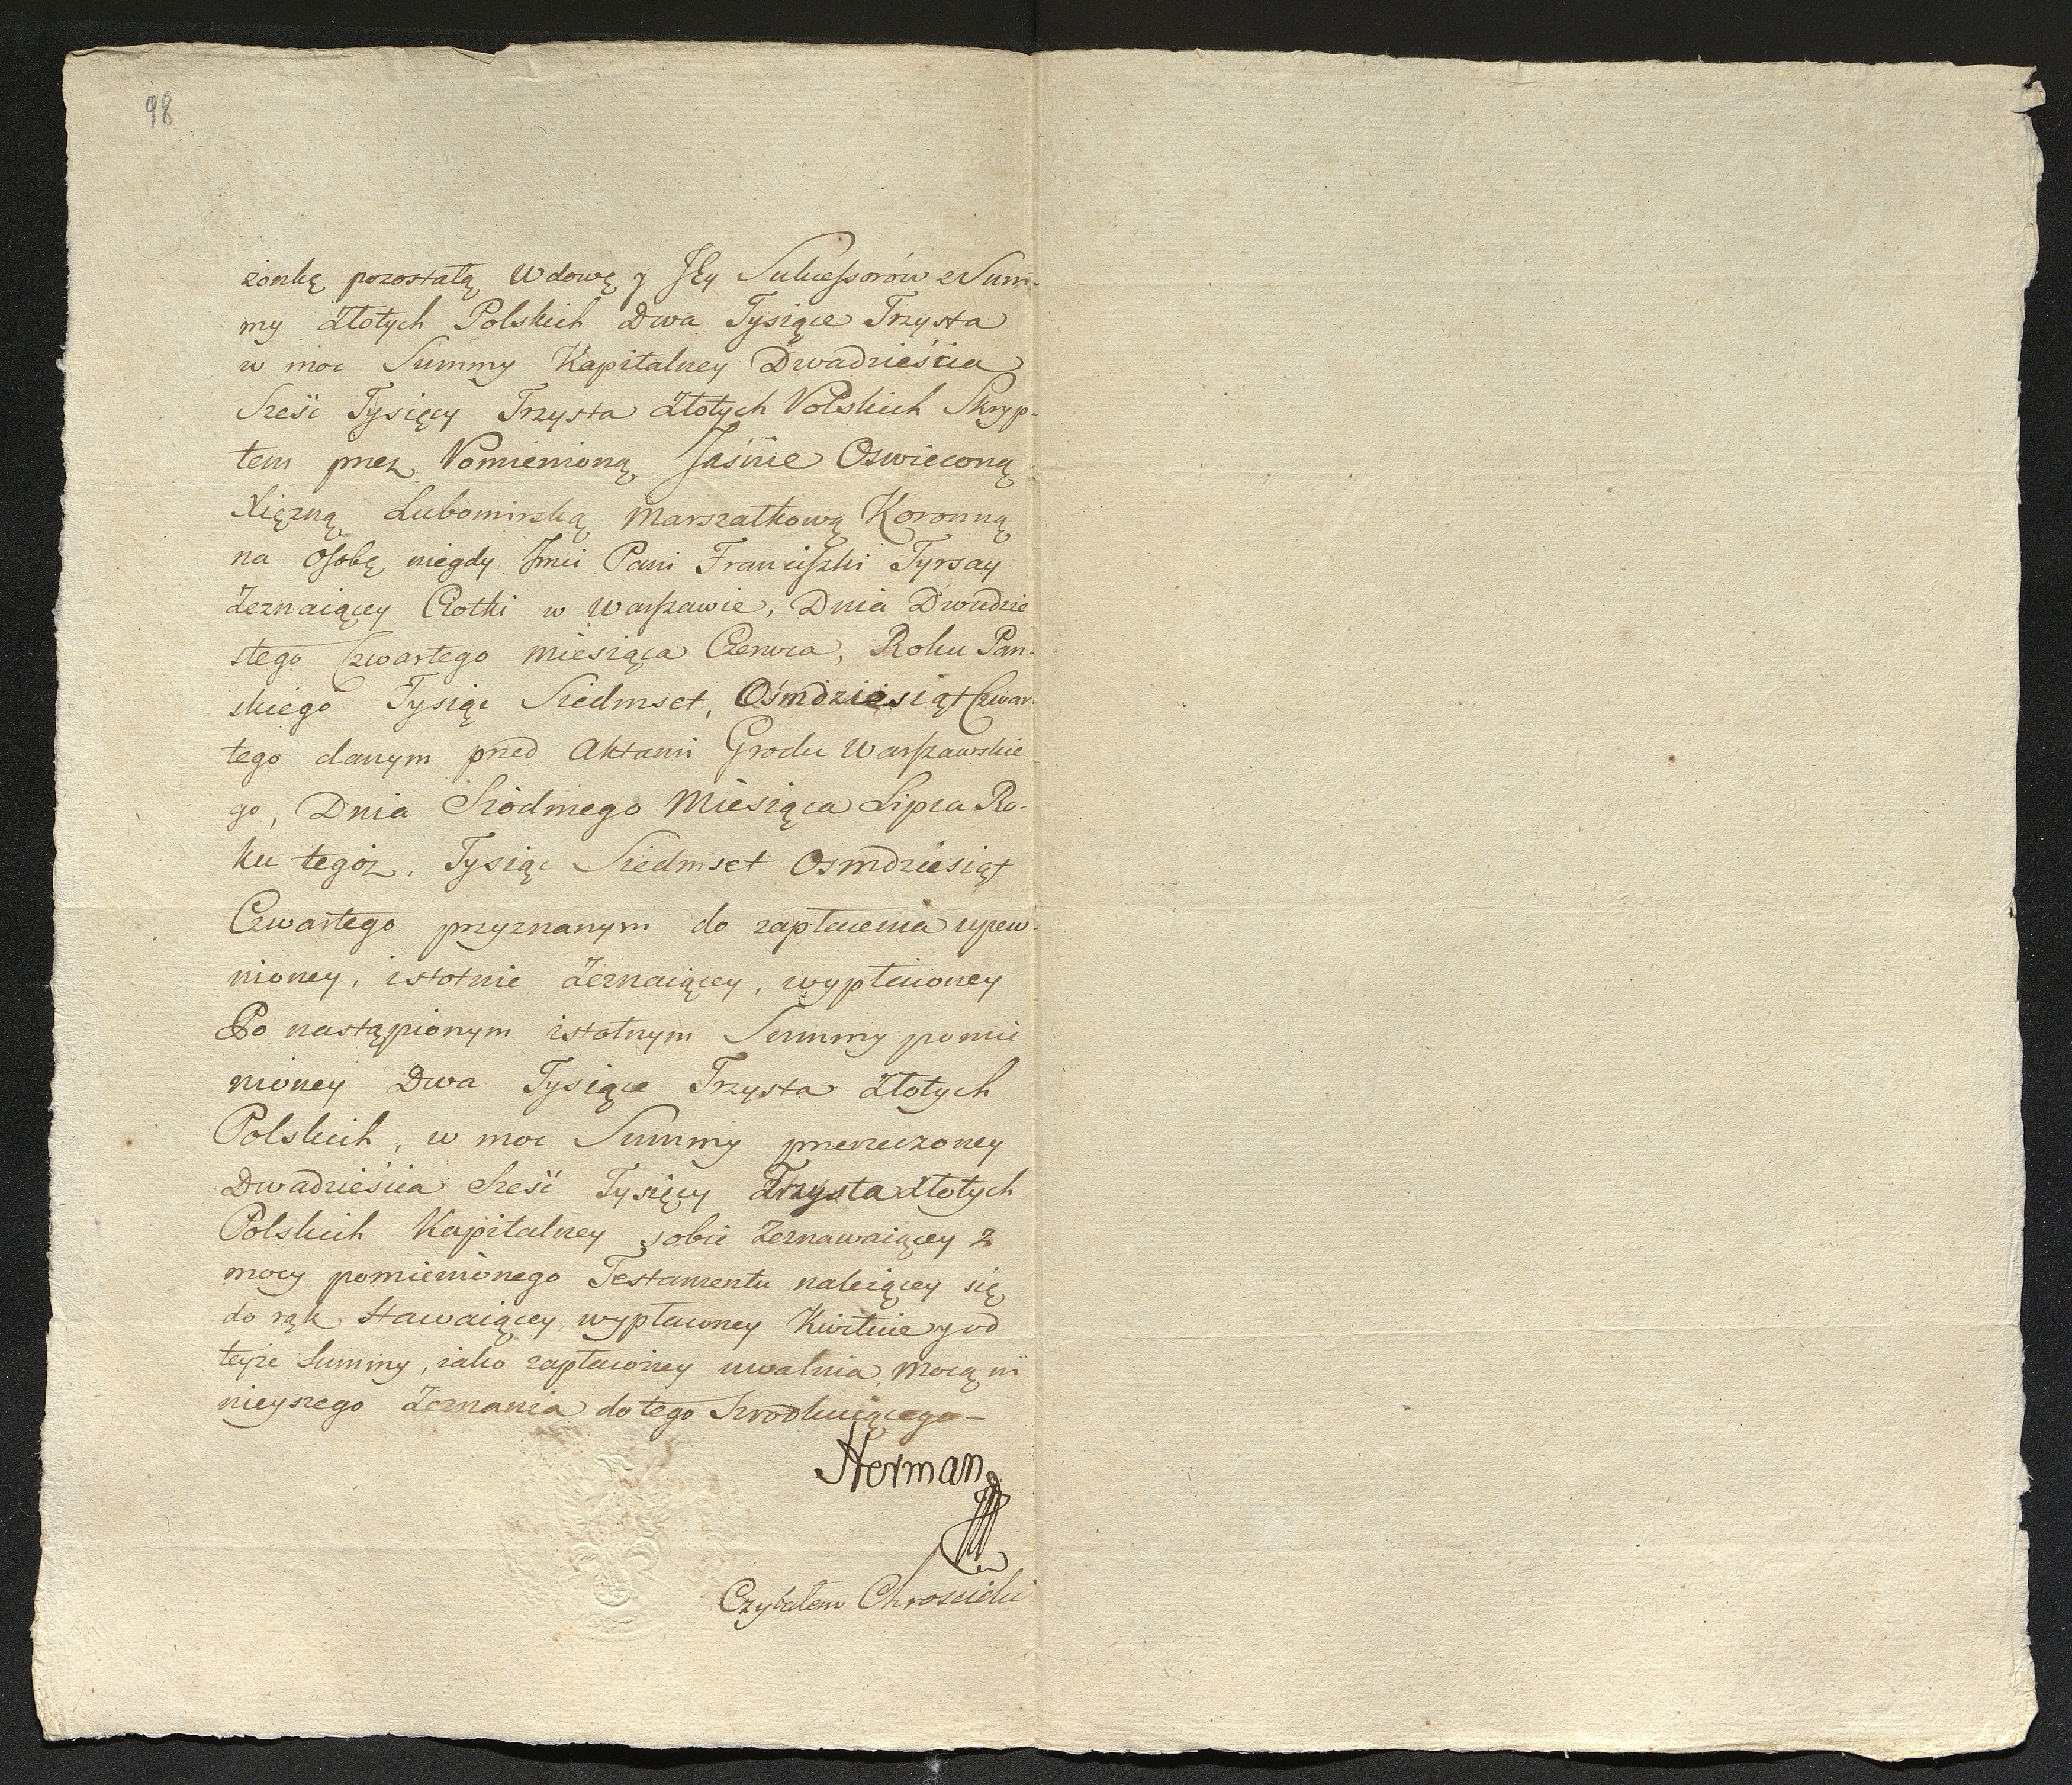 98
żonkę pozostałą Wdowę y JEy Sukcessorów z Sum-
my Złotych Polskich Dwa Tysiące Trzysta
w moc Summy Kapitalney Dwadzieścia
Sześć Tysięcy Trzysta Złotych Polskich Skryp-
tem przez Pomienioną Jaśnie Oswieconą
Xięzną Lubomirską Marszałkową Koronną
na Osobę niegdy Jmci Pani Franciszki Tyrsay
Zeznaiącey Ciotki w Warszawie, Dnia Dwudzie
stego Czwartego Miesiąca Czerwca, Roku Pan-
skiego Tysiąc Siedmset, Ośmdziesiąt Czwar-
tego danym przed Aktami Grodu Warszawskie
go, Dnia Siódmego Miesiąca Lipca Ro-
ku tegóż, Tysiąc Siedmset Osmdziesiąt
Czwartego przyznanym do zapłacenia upew-
nioney, istotnie Zeznaiącey, wypłaconey
Po nastąpionym istotnym Summy pomie
nioney Dwa Tysiące Trzysta Złotych
Polskich, w moc Summy przerzeczoney
Dwadzieścia Sześć Tysięcy Trzysta Złotych
Polskich Kapitalney sobie Zeznawaiącey z
mocy pomienionego Testamentu należącey się
do rąk Stawaiącey wypłaconey Kwituie y od
teyże Summy, iako zapłaconey uwalnia, Mocą ni
nieyszego Zeznania do tego Szrodkuiącego –
Herman
Czytałem Chrościcki